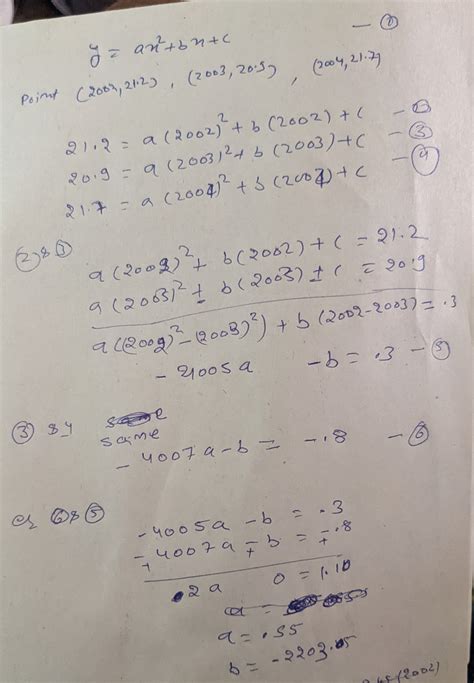 y = ax²+bx+c — ①
Point (2002, 21.2), (2003, 20.9), (2004, 21.7)
21.2 = a(2002)² + b(2002) + c — ②
20.9 = a(2003)² + b(2003) + c — ③
21.7 = a(2004)² + b(2004) + c — ④
② & ③
a(2002)² + b(2002) + c = 21.2
a(2003)² ± b(2003) ± c = 20.9
a((2002)² - (2003)²) + b(2002-2003) = .3
- 4005a - b = .3 — ⑤
③ & 4
same
- 4007a - b = - .8 — ⑥
⑥ & ⑤
- 4005a - b = .3
- 4007a - b = - .8
2a 0 = 1.10
a = .55
b = -2203.05
(2002)